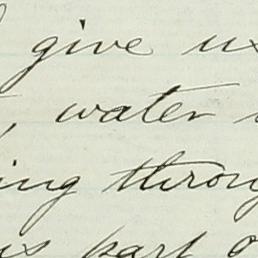 give us
, water
ing throug
us part o